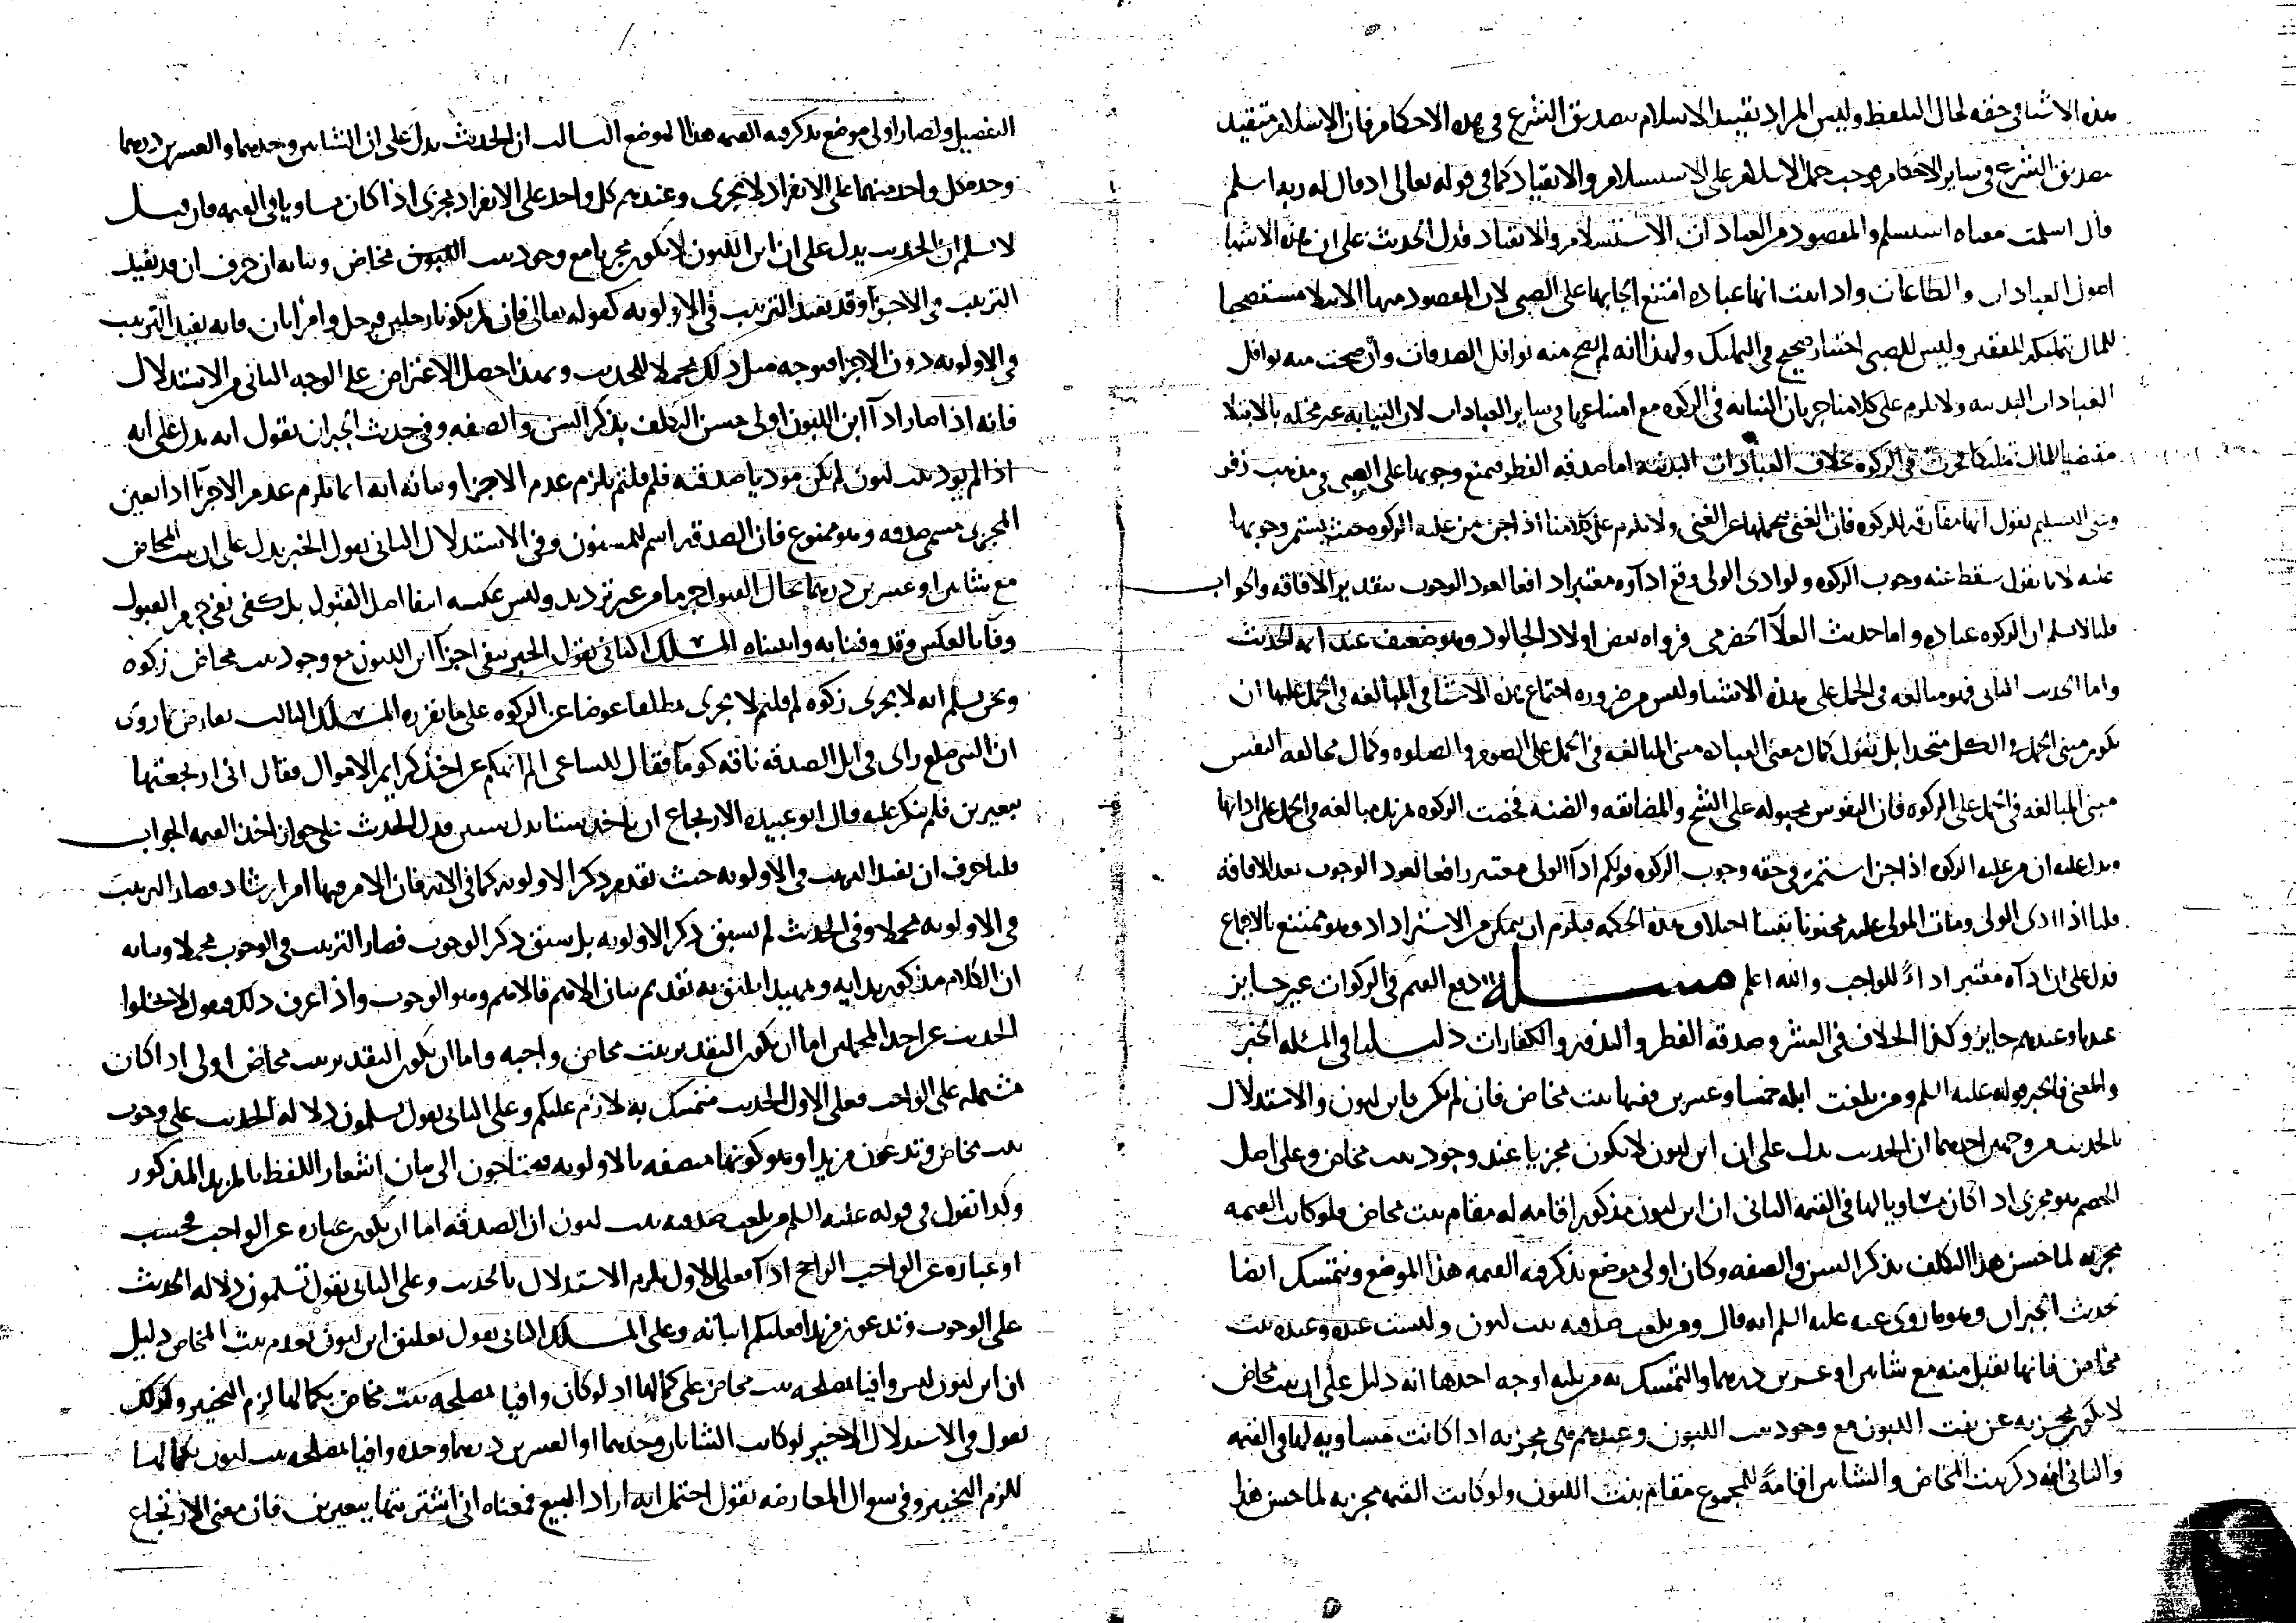 هذه الاشيا في حقه لحال التلفظ وليس المراد تقييد الاسلام بتصديق الشرع في هذه الاحكام فان الاسلام متقيد
بتصديق الشرع في ساير الاحكام فوجب حمل الاسلام على الاستسلام والانقياد كما في قوله تعالى اذ قال له ربه اسلم
قال اسلمت معناه استسلم والمقصود من العبادات الاستسلام والانقياد فدل الحديث على ان هذه الاشيا
اصول العبادات والطاعات واذا ثبت انها عباده امتنع ايجابها على الصبي لان المقصود منها الابتلا مستصحبا
للمال بتمليكه الفقير وليس للصبي اختيار صحيح في التمليك ولهذا انه لم تصح منه نوافل الصدقات وان صحت منه نوافل
العبادات البدنيه ولا يلزم على كلامنا جريان النيابه في الزكوه مع امتناعها في ساير العبادات لان النيابه غير مخله بالابتلا
مقتضيا للمال تمليكا فجرت في الزكوه بخلاف العبادات البدنيه اما صدقه الفطر فيمنع وجوبها على الصبي في مذهب زفر
وبتى التسليم نقول انها مفارقه للزكوه فان الغني تحملها عن الغني ولا يلزم على كلامنا اذا جن من عليه الزكوه حيث يستمر وجوبها
عليه لانا نقول سقط عنه وجوب الزكوه ولو ادى الولي وقع اداوه معتبرا دافعا لعود الوجوب بتقدير الافاقه والجواب
قلنا لا نسلم ان الزكوه عباده واما حديث العلا الحضرمي فرواه بعض اولاد الجالود وهو ضعيف عند ايمه الحديث
واما الحديث الثاني فهو مبالغه في الحمل على هذه الاشيا وليس من ضروره اجتماع هذه الاشيا في المبالغه في الحمل عليها ان
يكون مبنى الحمل في الكل متحدا بل نقول كمال معنى العباده مبنى المبالغه في الحمل على الصوم والصلوه وكمال مخالفه النفس
مبنى المبالغه في الحمل على الزكوه فان النفوس مجبوله على الشح والمضايقه والضنه فخصت الزكوه بمزيد مبالغه في الحمل على ادائها
ويدل عليه ان من عليه الزكوه اذا جن استمر في حقه وجوب الزكوه قولكم ادا الولي معتبر رافعا لعود الوجوب بعد الافاقه
قلنا اذا ادى الولي ومات المولى عليه مجنونا تبينا اختلاف هذه الحكمه فيلزم ان يتمكن من الاسترداد وهو ممتنع بالاجماع
فدل على ان اداه معتبر اداءً للواجب والله اعلم مسـله دفع القيم في الزكوات غير جايز
عندنا وعندهم جايز وكذا الخلاف في العشر وصدقه الفطر والنذور والكفارات دليلنا في المسله الخبر
والمعنى فالخبر قوله عليه السلم ومن بلغت ابله خمسا وعشرين ففيها بنت مخاض فان لم يكن فابن لبون والاستدلال
بالحديث من وجهين احدهما ان الحديث يدل على ان ابن لبون لا يكون مجزيا عند وجود بنت مخاض وعلى اصل
الخصم هو مجزى اذا كان مساويا لها في القيمه الثاني ان ابن لبون مذكور اقامه له مقام بنت مخاض ولو كانت القيمه
مجزيه لما حسن هذا التكلف بذكر السن والصفه وكان اولى موضع تذكر فيه القيمه هذا الموضع ونتمسك ايضا
بحديث الجبران وهو ما روى عنه عليه السلم انه قال ومن بلغت صدقته بنت لبون وليست عنده وعنده بنت
مخاض فانها تقبل منه مع شاتين او عشرين درهما والتمسك به من ثلثه اوجه احدها انه دليل على ان بنت مخاض
لا تكون مجزيه عن بنت اللبون مع وجود بنت اللبون وعندهم هي مجزيه اذا كانت مساويه لها في القيمه
والثاني انه ذكر بنت المخاض والشاتين اقامةً للمجموع مقام بنت اللبون ولو كانت القيمه مجزيه لما حسن هذا
التفصيل ولصار اولى موضع تذكر فيه القيمه هذا الموضع الثالث ان الحديث يدل على ان الشاتين وحدهما والعشرين درهما
وحده كل واحد منهما على الانفراد لا يجزى وعندهم كل واحد على الانفراد مجزى اذا كان مساويا في القيمه فان قيل
لا نسلم ان الحديث يدل على ان ابن اللبون لا يكون مجزيا مع وجود بنت مخاض وبيانه ان حرف ان قد يفيد
الترتيب في الاجزا وقد يفيد الترتيب في الاولويه كقوله تعالى فان لم يكونا رجلين فرجل وامراتان فانه يفيد الترتيب
في الاولويه دون الاجزا فنوجه مثل ذلك محملا للحديث وبهذا حصل الاعتراض على الوجه الثاني من الاستدلال
فانه اذا صار ادا ابن اللبون اولى حسن التكلف بذكر السن والصفه وفي حديث الجبران نقول انه يدل على انه
اذا لم يود بنت لبون لم يكن موديا صدقته فلم قلتم يلزم عدم الاجزا وبيانه انه انما يلزم عدم الاجزا اذا تعين
المجزى مسمى صدقه وهو ممنوع فان الصدقه اسم للمسنون وفي الاستدلال الثاني نقول الخبر يدل على ان بنت المخاض
مع شاتين او عشرين درهما بحال القبول جزما من غير ترديد وليس عكسه انتفا اصل القبول بل كفى نفي جزم القبول
وفا بالعكس وقد وفينا به واثبتناه المسلك الثاني نقول الخبر ينفي اجزا ابن اللبون مع وجود بنت مخاض زكوه
ونحن نسلم انه لا يجزى زكوه لم قلتم لا يجزى مطلقا عوضا عن الزكوه على ما نقرره المسلك الثالث يعارض بما روى
ان النبي صلعم راى في ابل الصدقه ناقه كوما فقال للساعي الم انهكم عن اخذ كرايم الاموال فقال اني ارتجعتها
ببعيرين فلم ينكر عليه قال ابو عبيده الارتجاع ان ياخذ سنا بدل سنين فدل الحديث على جواز اخذ القيمه الجواب
قلنا حرف ان يفيد الترتيب في الاولويه حيث تقدم ذكر الاولويه كما في الايه فان الامر فيها امر ارشاد فصار الترتيب
في الاولويه محملا وفي الحديث لم يسبق ذكر الاولويه بل سبق ذكر الوجوب فصار الترتيب في الوجوب محملا وبيانه
ان الكلام مذكور بدايه وتمهيدا يليق به تقديم بيان الاهم فالاهم وهو الوجوب واذا عرف ذلك فنقول لا تخلوا
الحديث عن احد المحملين اما ان يكون التقدير بنت مخاض واجبه واما ان يكون التقدير بنت مخاض اولى اذا كان
مشتمله على الواجب فعلى الاول الحديث متمسك به لازم عليكم وعلى الثاني نقول تسلمون دلاله الحديث على وجوب
بنت مخاض وتدعون مزيدا وهو كونها متصفه بالاولويه فتحتاجون الى بيان اشعار اللفظ بالمزيد المذكور
وكذا نقول في قوله عليه السلم من بلغت صدقته بنت لبون ان الصدقه اما ان يكون عباره عن الواجب فحسب
او عباره عن الواجب الراجح ادا فعلى الاول يلزم الاستدلال بالحديث وعلى الثاني نقول تسلمون دلاله الحديث
على الوجوب وتدعون مزيدا فعليكم اثباته وعلى المسلك الثاني نقول تعليق ابن لبون بعدم بنت المخاض دليل
ان ابن لبون ليس وافيا بمصلحه بنت مخاض على كمالها اذ لو كان وافيا بمصلحه بنت مخاض بكمالها لزم التخيير وكذلك
نقول في الاستدلال الاخير لو كانت الشاتان وحدهما او العشرين درهما وحده وافيا بمصلحه بنت لبون بكمالها
للزم التخيير وفي سوال المعارضه نقول احتمل انه اراد البيع فمعناه اني اشتريتها ببعيرين فان معنى الارتجاع